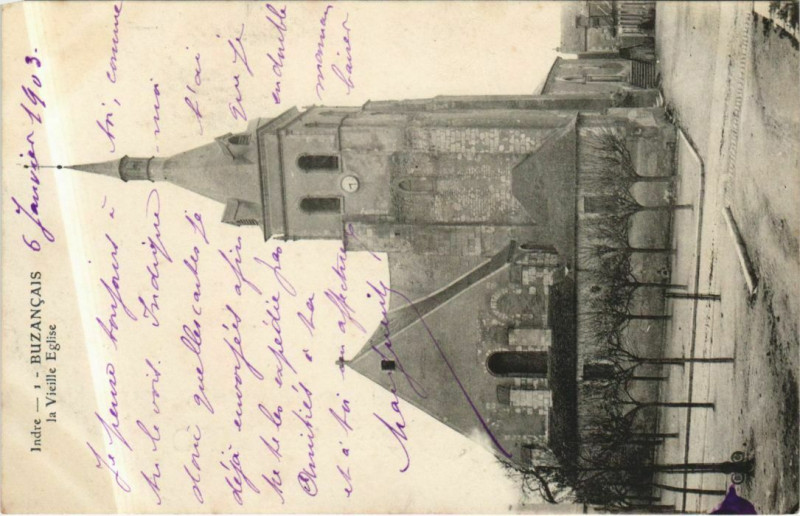 Indre — 1 - BUZANÇAIS
la Vieille Eglise
6 Janvier 1903.
Je pense toujours à toi, comme
tu le vois. Indique-moi
donc quelles cartes je t'ai
déjà envoyées afin que je
ne te les expédie pas en double
Amitiés à ta maman
et à toi mon affectueux baiser
Marguerite